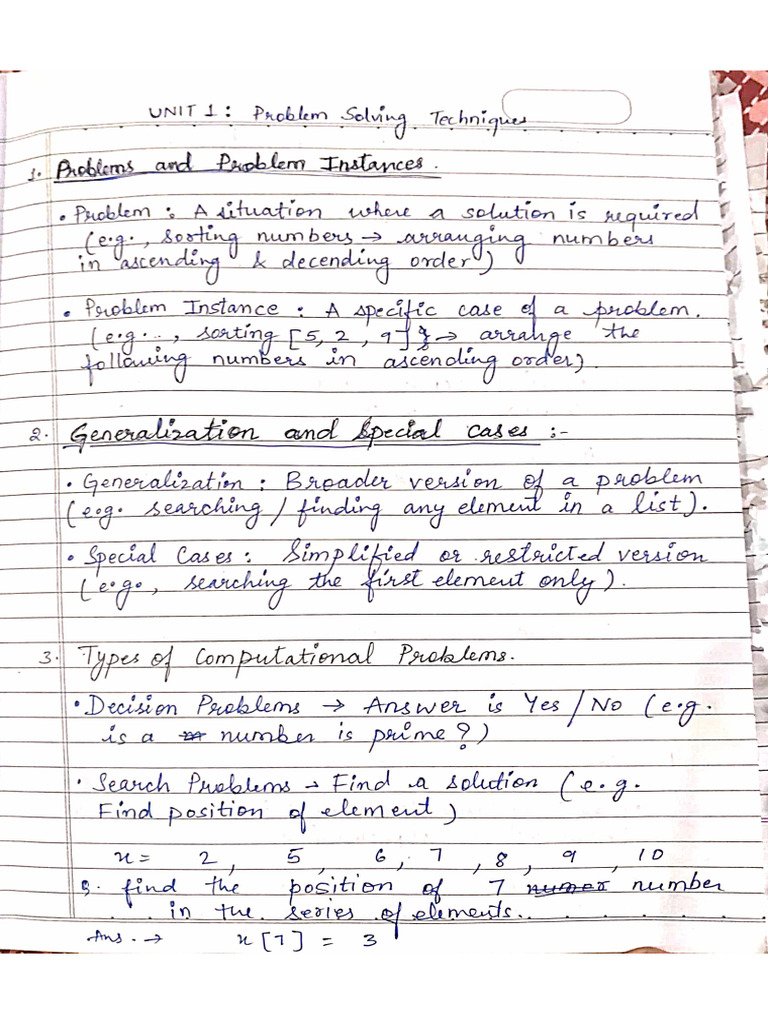 UNIT 1: Problem Solving Techniques
1. Problems and Problem Instances.
• Problem: A situation where a solution is required
(e.g., sorting numbers → arranging numbers
in ascending & decending order)
• Problem Instance: A specific case of a problem.
(e.g.., sorting [5, 2, 9]} → arrange the
following numbers in ascending order).
2. Generalization and Special cases :-
• Generalization: Broader version of a problem
(e.g. searching / finding any element in a list).
• Special Cases: Simplified or restricted version
(e.g., searching the first element only).
3. Types of Computational Problems.
• Decision Problems → Answer is Yes / No (e.g.
is a number is prime?)
• Search Problems → Find a solution (e.g.
Find position of element)
x = 2, 5, 6, 7, 8, 9, 10
find the position of 7 number
in the series of elements.
Ans. → x[7] = 3